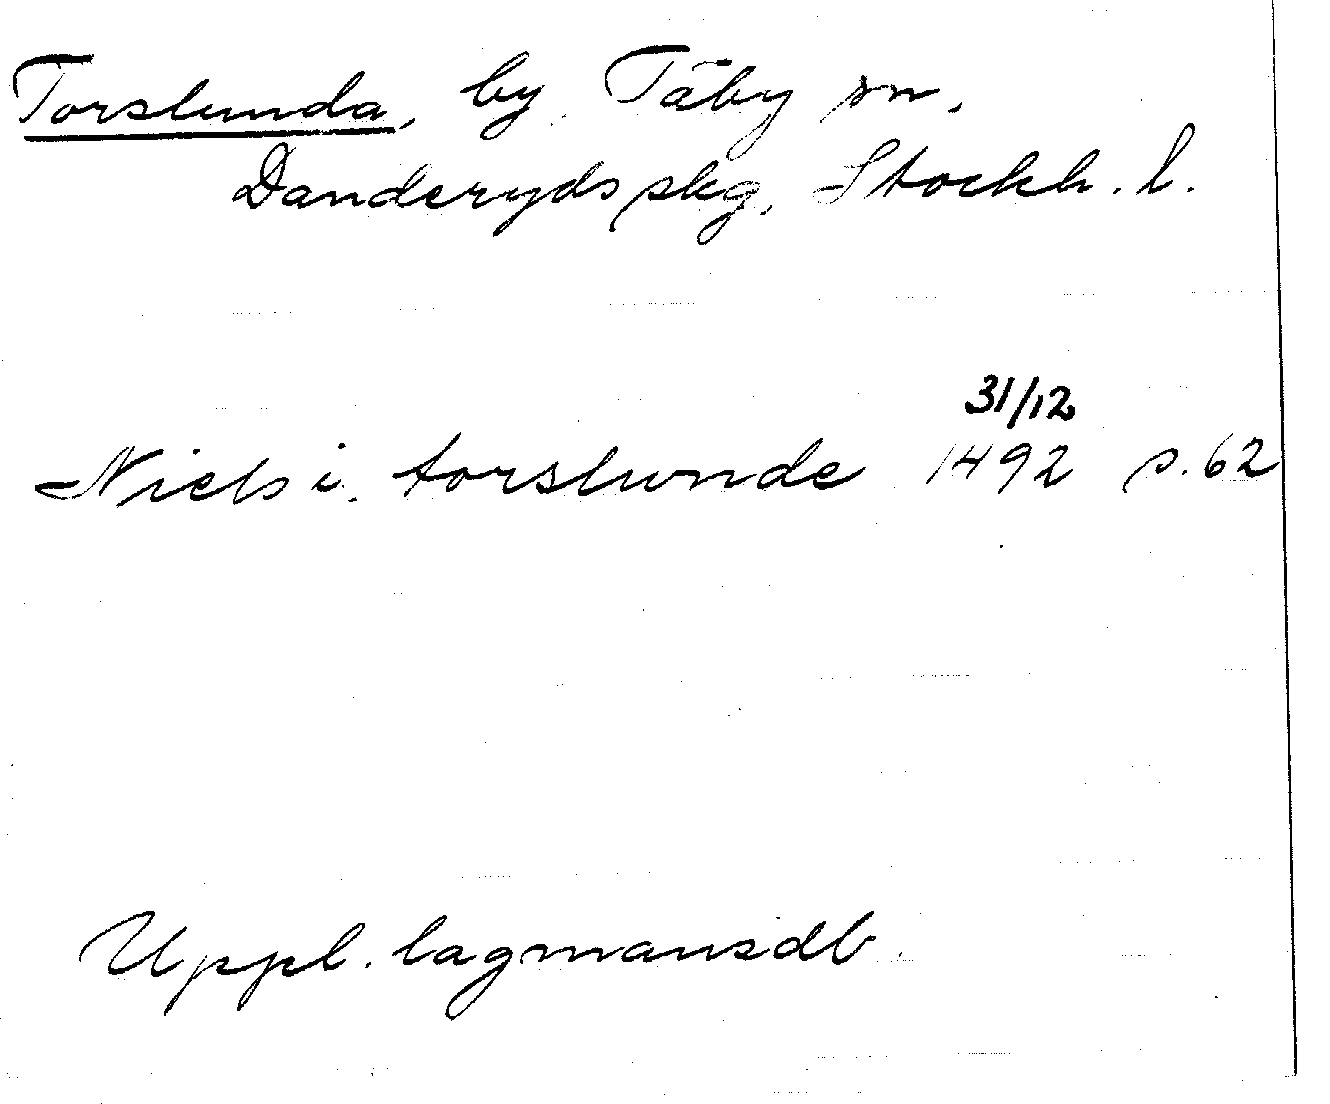 Torslunda, by. Täby sn.
Danderyds skg, Stockh. l.
31/12
Niels i. torslunde 1492 s. 62
Uppl. lagmansdb.